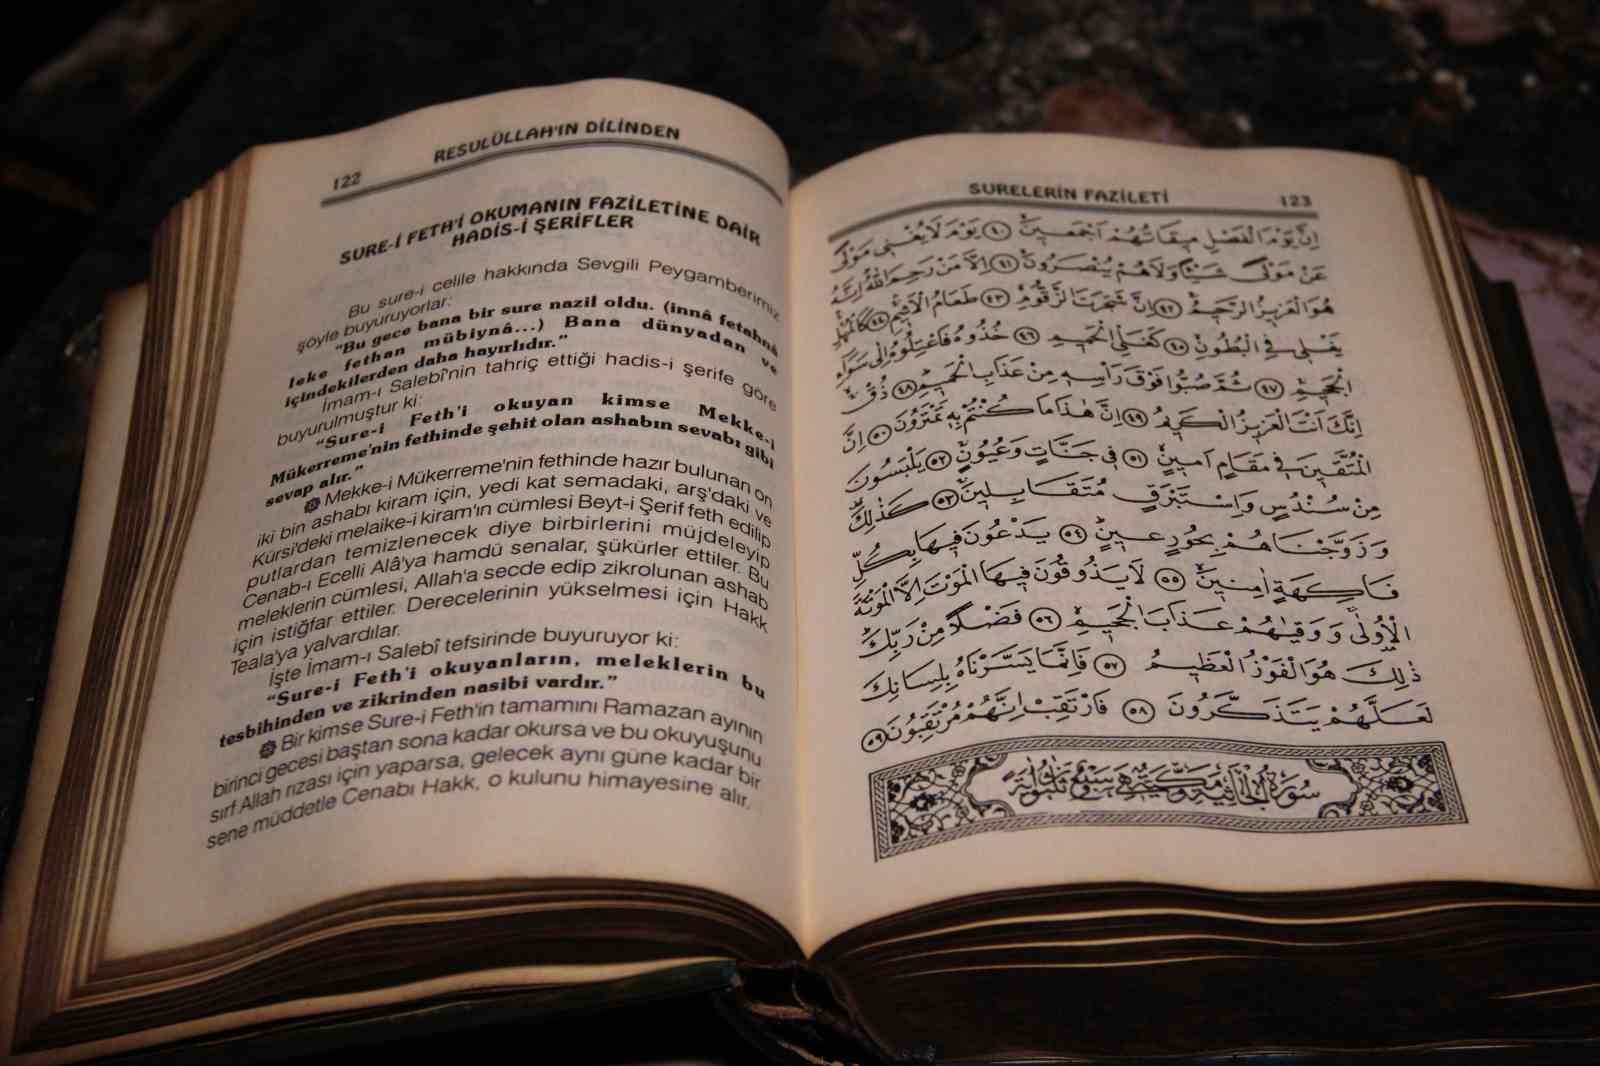 122
RESULÜLLAH'IN DİLİNDEN
SURE-İ FETH'İ OKUMANIN FAZİLETİNE DAİR
HADİS-İ ŞERİFLER
Bu sure-i celile hakkında Sevgili Peygamberimiz
şöyle buyuruyorlar:
"Bu gece bana bir sure nazil oldu. (innâ fetahnâ
leke fethan mübiynâ...) Bana dünyadan ve
içindekilerden daha hayırlıdır."
İmam-ı Salebî'nin tahriç ettiği hadis-i şerife göre
buyurulmuştur ki:
"Sure-i Feth'i okuyan kimse Mekke-i
Mükerreme'nin fethinde şehit olan ashabın sevabı gibi
sevap alır."
Mekke-i Mükerreme'nin fethinde hazır bulunan on
iki bin ashabı kiram için, yedi kat semadaki, arş'daki ve
Kürsi'deki melaike-i kiram'ın cümlesi Beyt-i Şerif feth edilip
putlardan temizlenecek diye birbirlerini müjdeleyip
Cenab-ı Ecelli Alâ'ya hamdü senalar, şükürler ettiler. Bu
meleklerin cümlesi, Allah'a secde edip zikrolunan ashab
için istiğfar ettiler. Derecelerinin yükselmesi için Hakk
Teala'ya yalvardılar.
İşte İmam-ı Salebî tefsirinde buyuruyor ki:
"Sure-i Feth'i okuyanların, meleklerin bu
tesbihinden ve zikrinden nasibi vardır."
Bir kimse Sure-i Feth'in tamamını Ramazan ayının
birinci gecesi baştan sona kadar okursa ve bu okuyuşunu
sırf Allah rızası için yaparsa, gelecek aynı güne kadar bir
sene müddetle Cenabı Hakk, o kulunu himayesine alır.
SURELERİN FAZİLETİ
123
اِنَّ يَوْمَ الْفَصْلِ مٖيقَاتُهُمْ اَجْمَعٖينَۙ ﴿٤٠﴾ يَوْمَ لَا يُغْنٖى مَوْلًى
عَنْ مَوْلًى شَيْـًٔا وَلَا هُمْ يُنْصَرُونَۙ ﴿٤١﴾ اِلَّا مَنْ رَحِمَ اللّٰهُ اِنَّهُ
هُوَ الْعَزٖيزُ الرَّحٖيمُ ﴿٤٢﴾ اِنَّ شَجَرَتَ الزَّقُّومِۙ ﴿٤٣﴾ طَعَامُ الْاَثٖيمِ ﴿٤٤﴾ كَالْمُهْلِ
يَغْلٖى فِى الْبُطُونِۙ ﴿٤٥﴾ كَغَلْىِ الْحَمٖيمِ ﴿٤٦﴾ خُذُوهُ فَاعْتِلُوهُ اِلٰى سَوَاءِ
الْجَحٖيمِ ﴿٤٧﴾ ثُمَّ صُبُّوا فَوْقَ رَأْسِهٖ مِنْ عَذَابِ الْحَمٖيمِ ﴿٤٨﴾ ذُقْ
اِنَّكَ اَنْتَ الْعَزٖيزُ الْكَرٖيمُ ﴿٤٩﴾ اِنَّ هٰذَا مَا كُنْتُمْ بِهٖ تَمْتَرُونَ ﴿٥٠﴾ اِنَّ
الْمُتَّقٖينَ فٖى مَقَامٍ اَمٖينٍۙ ﴿٥١﴾ فٖى جَنَّاتٍ وَعُيُونٍۙ ﴿٥٢﴾ يَلْبَسُونَ
مِنْ سُنْدُسٍ وَاِسْتَبْرَقٍ مُتَقَابِلٖينَ ﴿٥٣﴾ كَذٰلِكَ
وَزَوَّجْنَاهُمْ بِحُورٍ عٖينٍ ﴿٥٤﴾ يَدْعُونَ فٖيهَا بِكُلِّ
فَاكِهَةٍ اٰمِنٖينَۙ ﴿٥٥﴾ لَا يَذُوقُونَ فٖيهَا الْمَوْتَ اِلَّا الْمَوْتَةَ
الْاُولٰى وَوَقٰيهُمْ عَذَابَ الْجَحٖيمِۙ ﴿٥٦﴾ فَضْلًا مِنْ رَبِّكَ
ذٰلِكَ هُوَ الْفَوْزُ الْعَظٖيمُ ﴿٥٧﴾ فَاِنَّمَا يَسَّرْنَاهُ بِلِسَانِكَ
لَعَلَّهُمْ يَتَذَكَّرُونَ ﴿٥٨﴾ فَارْتَقِبْ اِنَّهُمْ مُرْتَقِبُونَ ﴿٥٩﴾
سُورَةُ الْجَاثِيَةِ مَكِّيَّةٌ وَهِىَ سَبْعٌ وَثَلٰثُونَ اٰيَةً